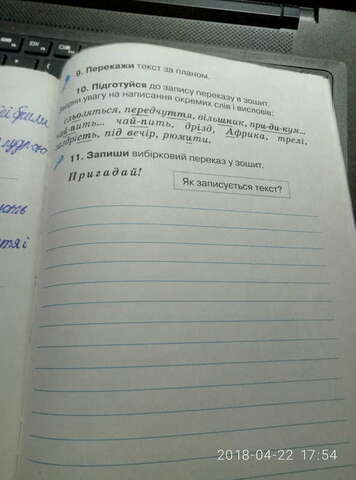 9. Перекажи текст за планом.
10. Підготуйся до запису переказу в зошит.
Зверни увагу на написання окремих слів і висловів:
сльозяться, передчуття, вільшник, при-ди-кум...
чай-пить... чай-пить, дрізд, Африка, трелі,
заздрість, під вечір, рюмити.
11. Запиши вибірковий переказ у зошит.
Пригадай!
Як записується текст?
2018-04-22 17:54